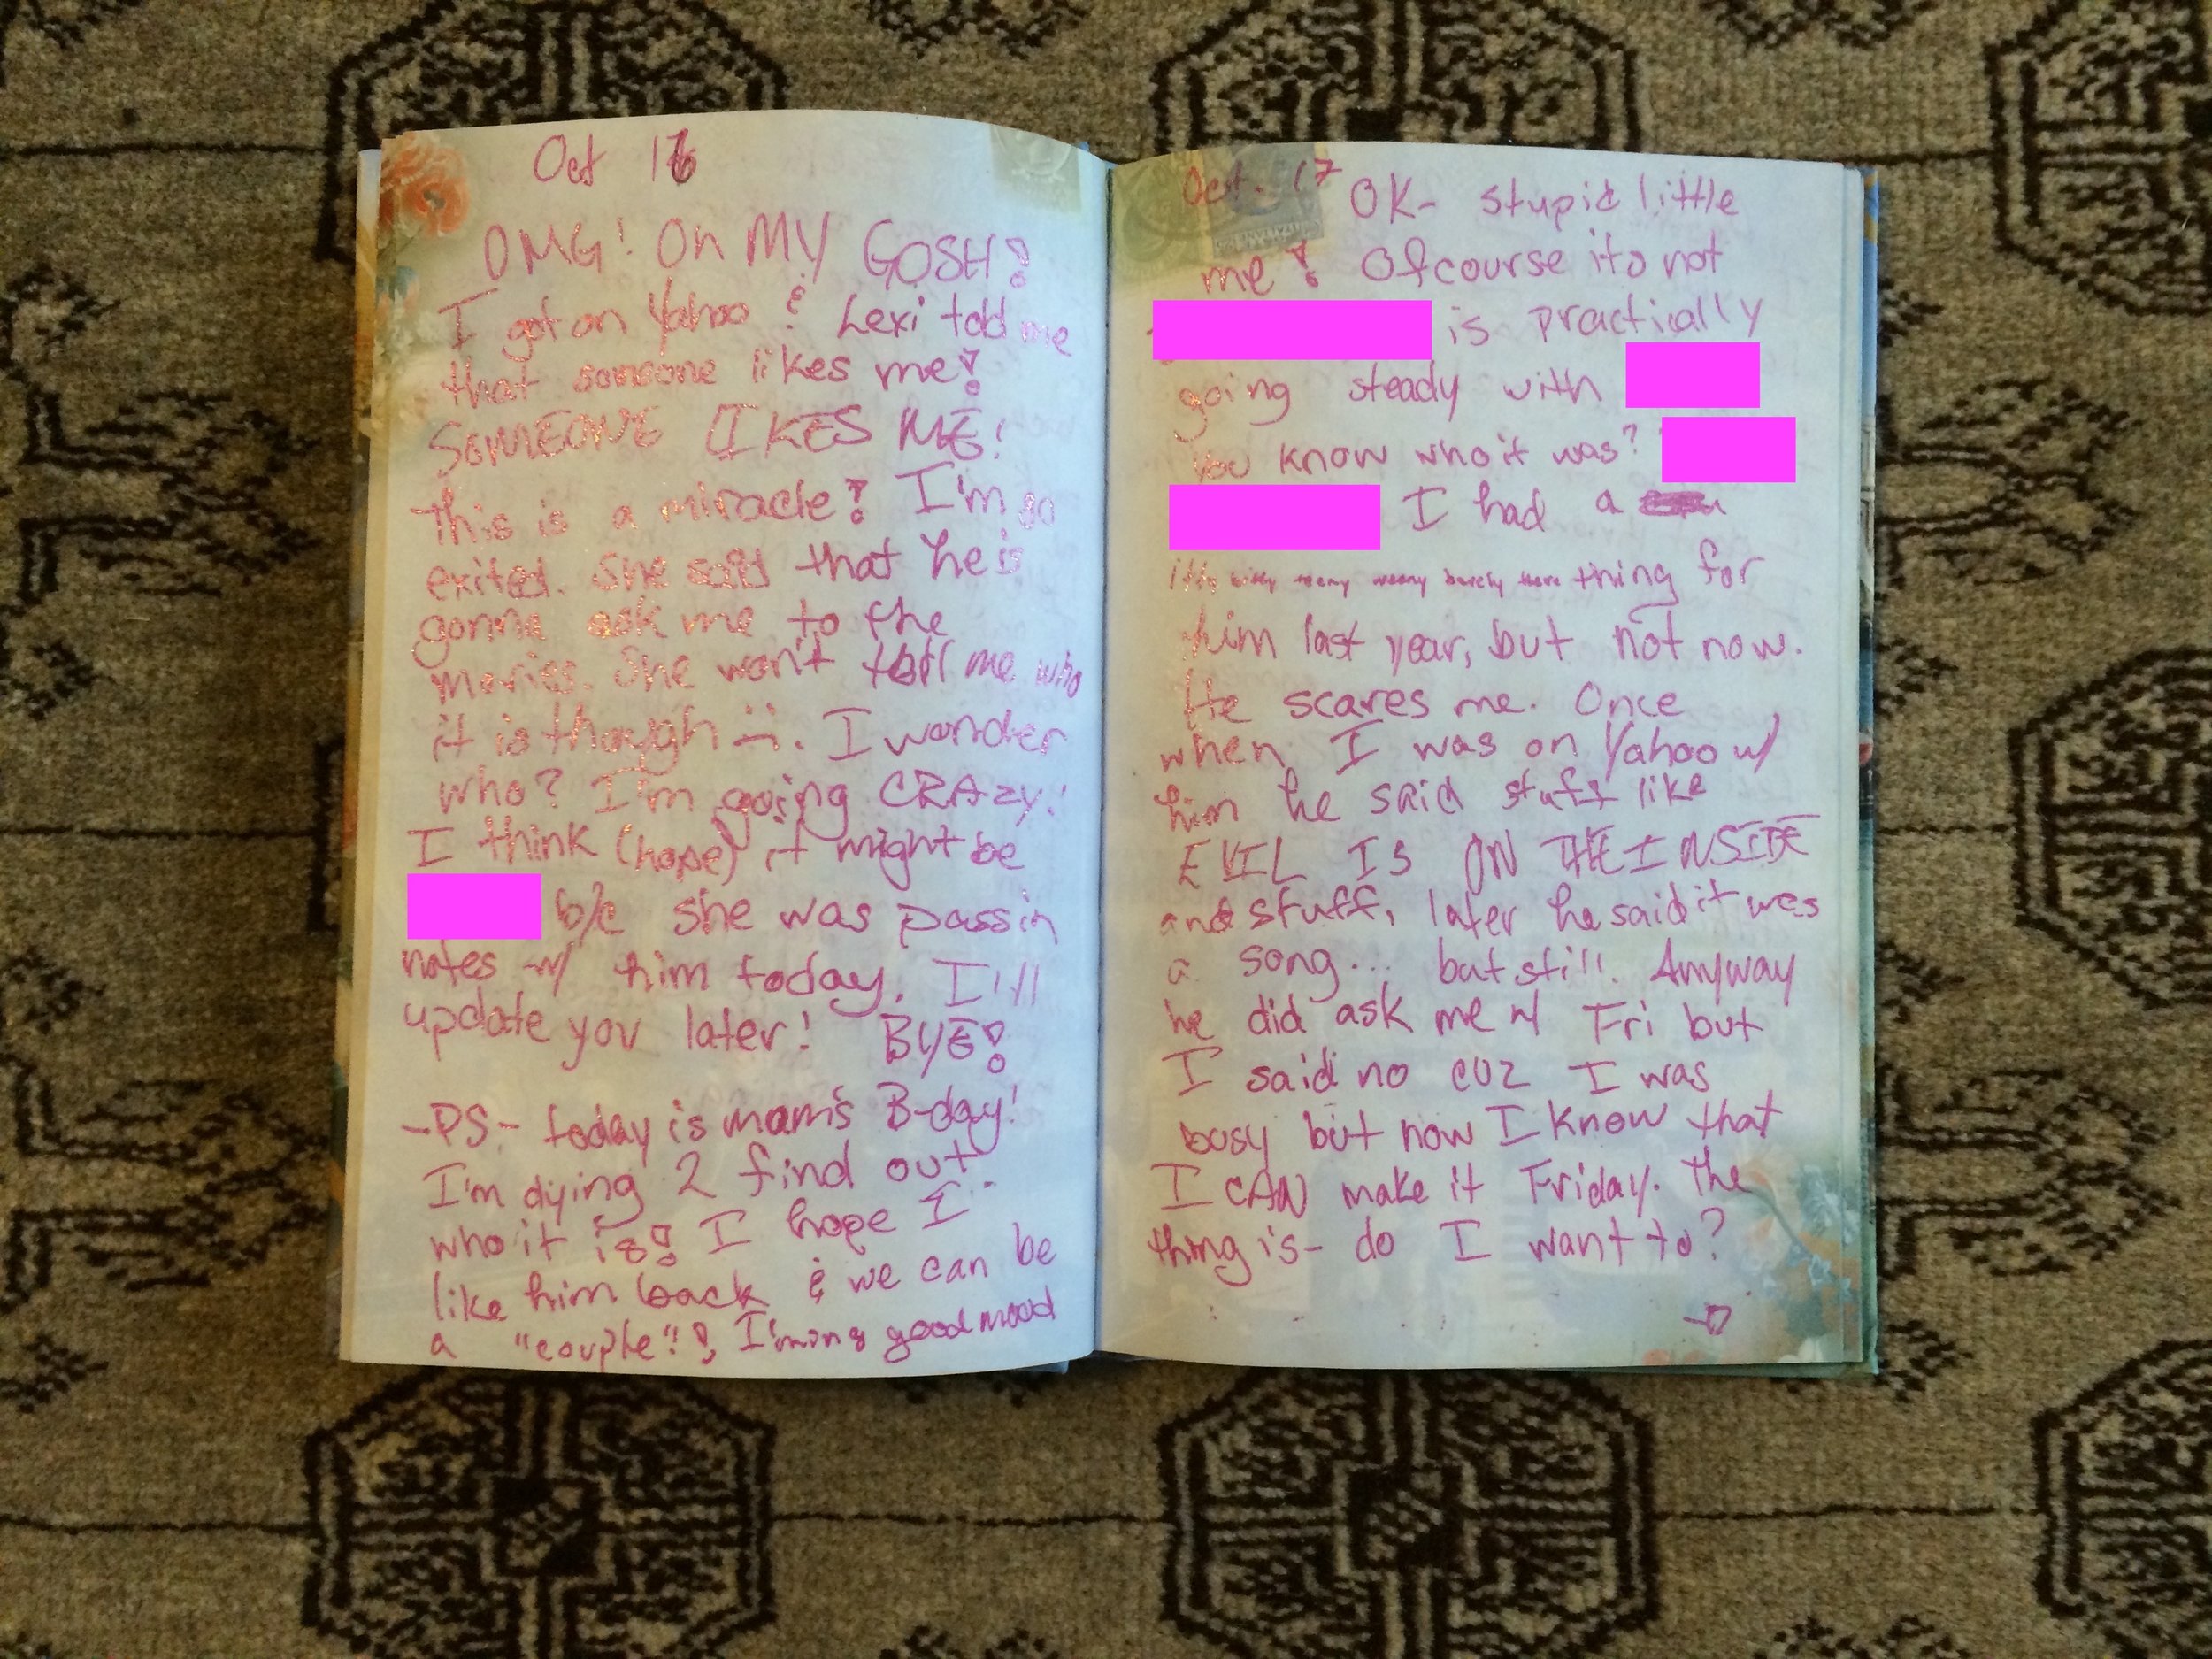 Oct 16
OMG! Oh MY GOSH!
I got on Yahoo & Lexi told me
that someone likes me!
SOMEONE LIKES ME!
this is a miracle! I'm so
exited. She said that he is
gonna ask me to the
movies. She won't tell me who
it is though :(. I wonder
who? I'm going CRAZY!
I think (hope) it might be
b/c she was passin
notes w/ him today. I'll
update you later! BYE!
-PS- today is mom's B-day!
I'm dying 2 find out
who it is! I hope I
like him back & we can be
a "couple"! I'm in a good mood
Oct. 17 OK- stupid little
me! Ofcourse its not
is practically
going steady with
You know who it was?
I had a
itty bitty teeny weeny barely there thing for
him last year, but not now.
He scares me. Once
when I was on Yahoo w/
him he said stuff like
EVIL IS ON THE INSIDE
and stuff, later he said it was
a song... but still. Anyway
he did ask me w/ Fri but
I said no cuz I was
busy but now I know that
I CAN make it Friday. The
thing is- do I want to?